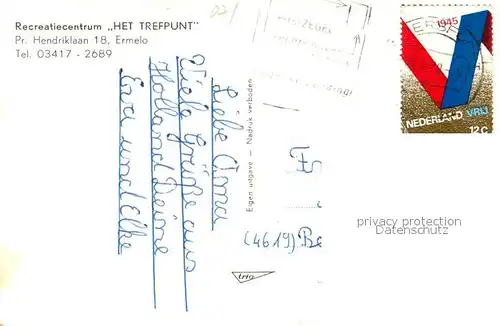 Recreatiecentrum „HET TREFPUNT"
Pr. Hendriklaan 18, Ermelo
Tel. 03417 - 2689
Liebe Oma
Viele Grüße aus
Holland Deine
Eva und Elke
Eigen uitgave — Nadruk verboden
(4619) Be
trio
1945
NEDERLAND VRIJ
12c
privacy protection
Datenschutz